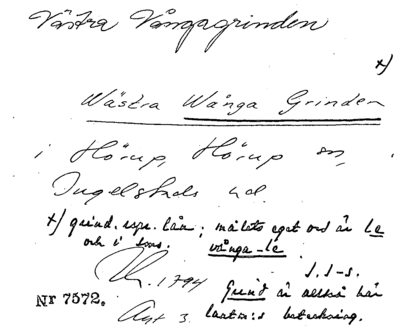 Västra Vångagrinden
x)
Wästra Wånga Grinden
i Hörup, Hörup sn,
Ingelstads hd.
x) grind. upv. lån; målets eget ord är le
och i sms. vånga-le
J. S-s.
1794
Grind är alltså här
Nr 7572.
Akt 3. lantm:s beteckning.